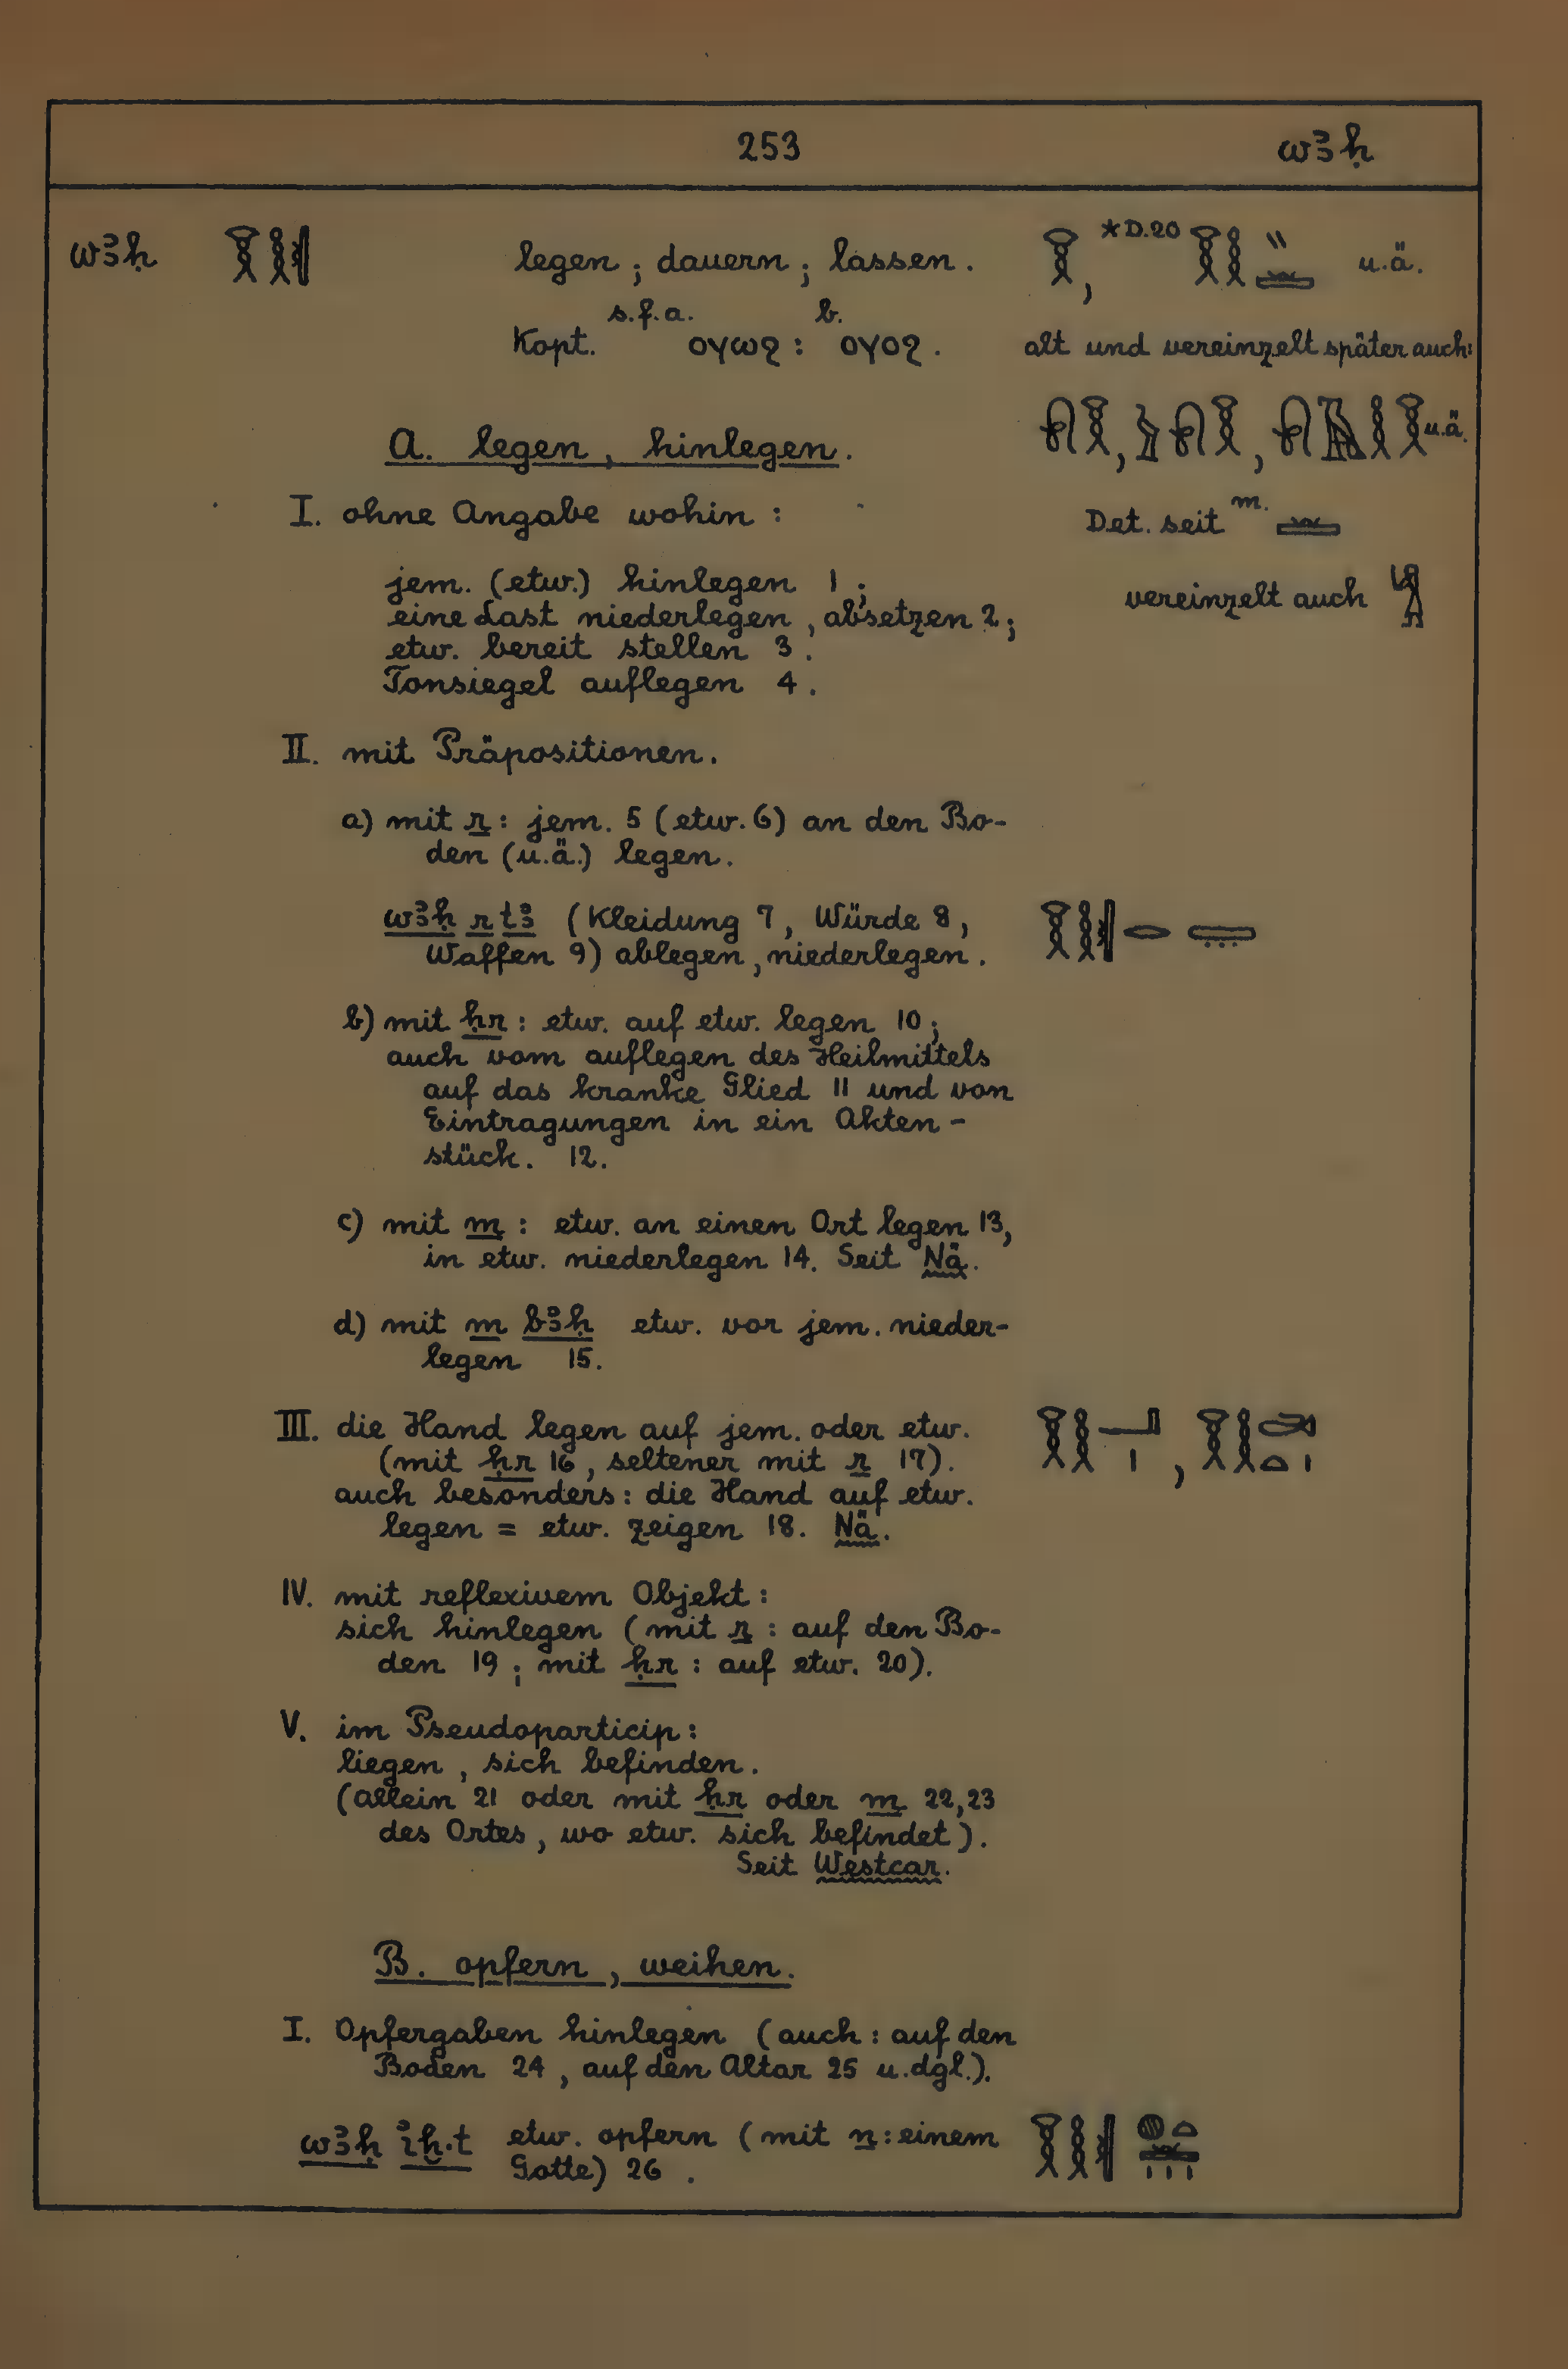 253 wꜣḥ
wꜣḥ legen ; dauern ; lassen . , *D.20 u.ä.
s.f.a. b.
Kopt. ⲟⲩⲱϩ : ⲟⲩⲟϩ . alt und vereinzelt später auch:
A. legen , hinlegen . , , u.ä.
I. ohne Angabe wohin : Det. seit m.
jem. (etw.) hinlegen 1 ; vereinzelt auch
eine Last niederlegen , absetzen 2 ;
etw. bereit stellen 3 .
Tonsiegel auflegen 4 .
II. mit Präpositionen .
a) mit r : jem. 5 (etw. 6) an den Bo-
den (u.ä.) legen .
wꜣḥ r tꜣ (Kleidung 7 , Würde 8 ,
Waffen 9) ablegen , niederlegen .
b) mit ḥr : etw. auf etw. legen 10 ;
auch vom auflegen des Heilmittels
auf das kranke Glied 11 und von
Eintragungen in ein Akten-
stück . 12 .
c) mit m : etw. an einen Ort legen 13 ,
in etw. niederlegen 14 . Seit Nä .
d) mit m bꜣḥ etw. vor jem. nieder-
legen 15 .
III. die Hand legen auf jem. oder etw.
(mit ḥr 16 , seltener mit r 17) .
auch besonders : die Hand auf etw.
legen = etw. zeigen 18 . Nä .
IV. mit reflexivem Objekt :
sich hinlegen (mit r : auf den Bo-
den 19 ; mit ḥr : auf etw. 20) .
V. im Pseudoparticip :
liegen , sich befinden .
(allein 21 oder mit ḥr oder m 22,23
des Ortes , wo etw. sich befindet) .
Seit Westcar .
B. opfern , weihen .
I. Opfergaben hinlegen (auch : auf den
Boden 24 , auf den Altar 25 u.dgl.) .
wꜣḥ iḫ·t etw. opfern (mit n : einem
Gotte) 26 .